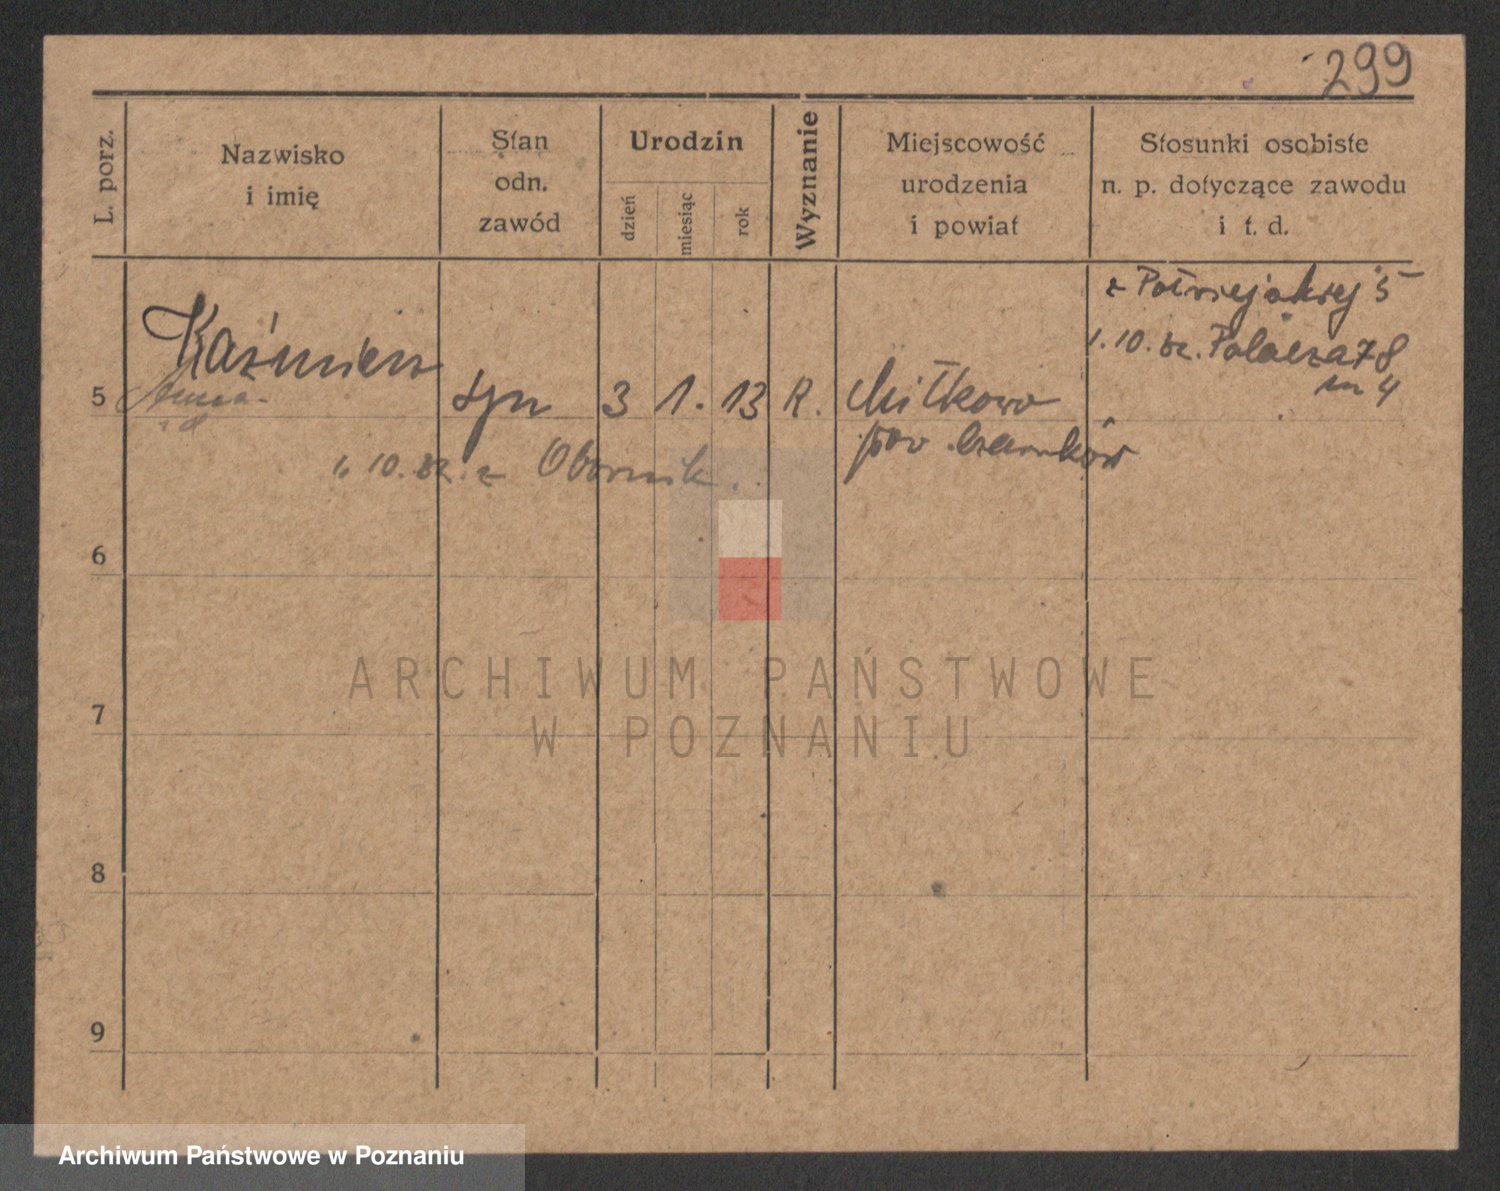 299
L. porz.
Nazwisko
i imię
Stan
odn.
zawód
Urodzin
dzień
miesiąc
rok
Wyznanie
Miejscowość
urodzenia
i powiat
Stosunki osobiste
n. p. dotyczące zawodu
i t. d.
5
Kaźmierz
syn
3
1.
13
R.
Miłkowo
pow Czarnków
z 5
1.10.32.
78
m 4
1.10.32. z Obornik.
6
7
8
9
ARCHIWUM PAŃSTWOWE
W POZNANIU
Archiwum Państwowe w Poznaniu